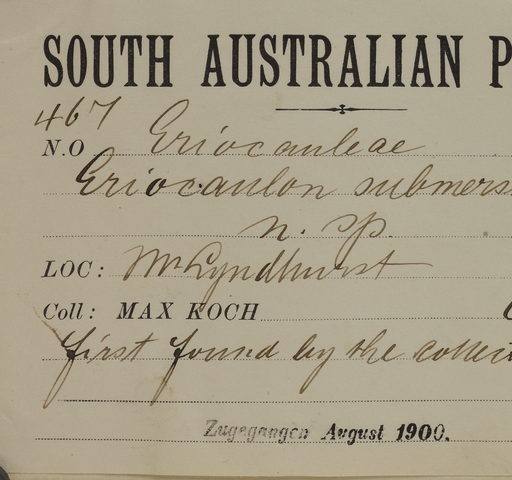 SOUTH AUSTRALIAN P
467
N.O Eriocauleae
Eriocaulon submers
n. sp.
LOC: Mt Lyndhurst
Coll: MAX KOCH
first found by the collec
Zugegangen August 1900.